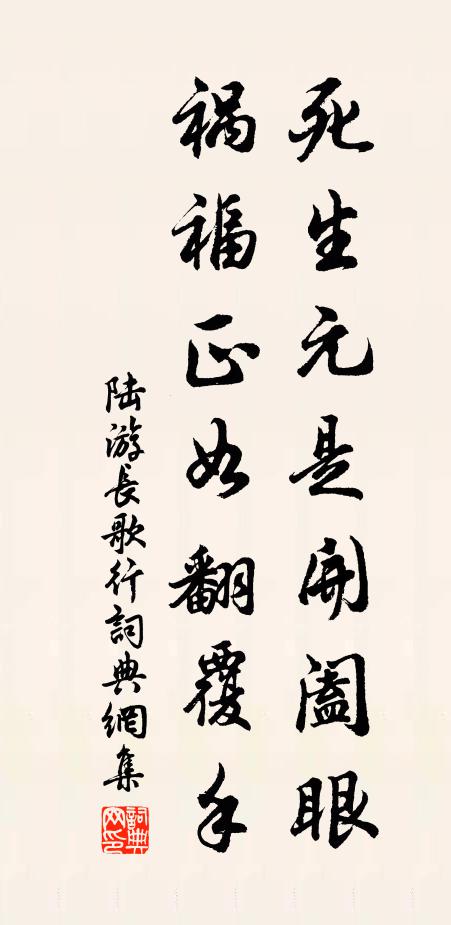 死生元是開阖眼
禍福正如翻覆手
陆游長歌行詞典網集
詞典网印